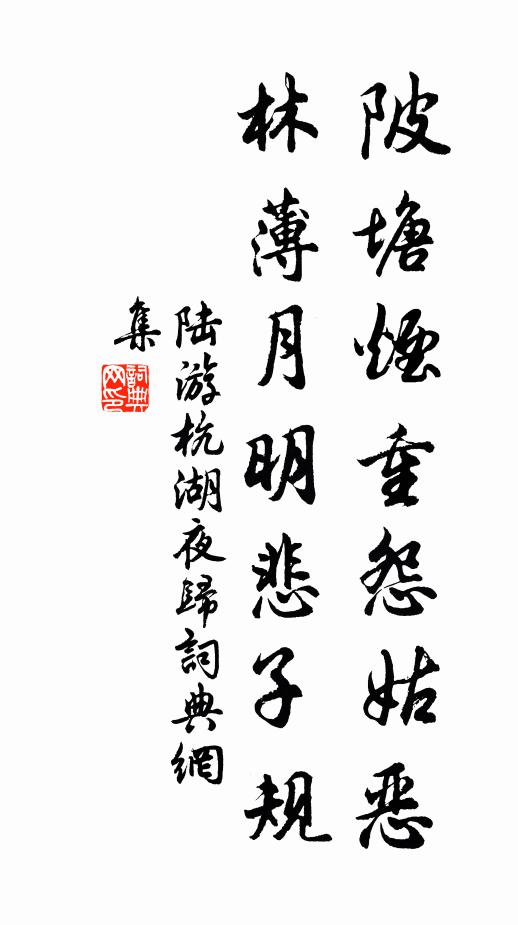 陂塘煙重怨姑恶
林薄月明悲子規
陆游杭湖夜歸詞典網
集
詞典
网印